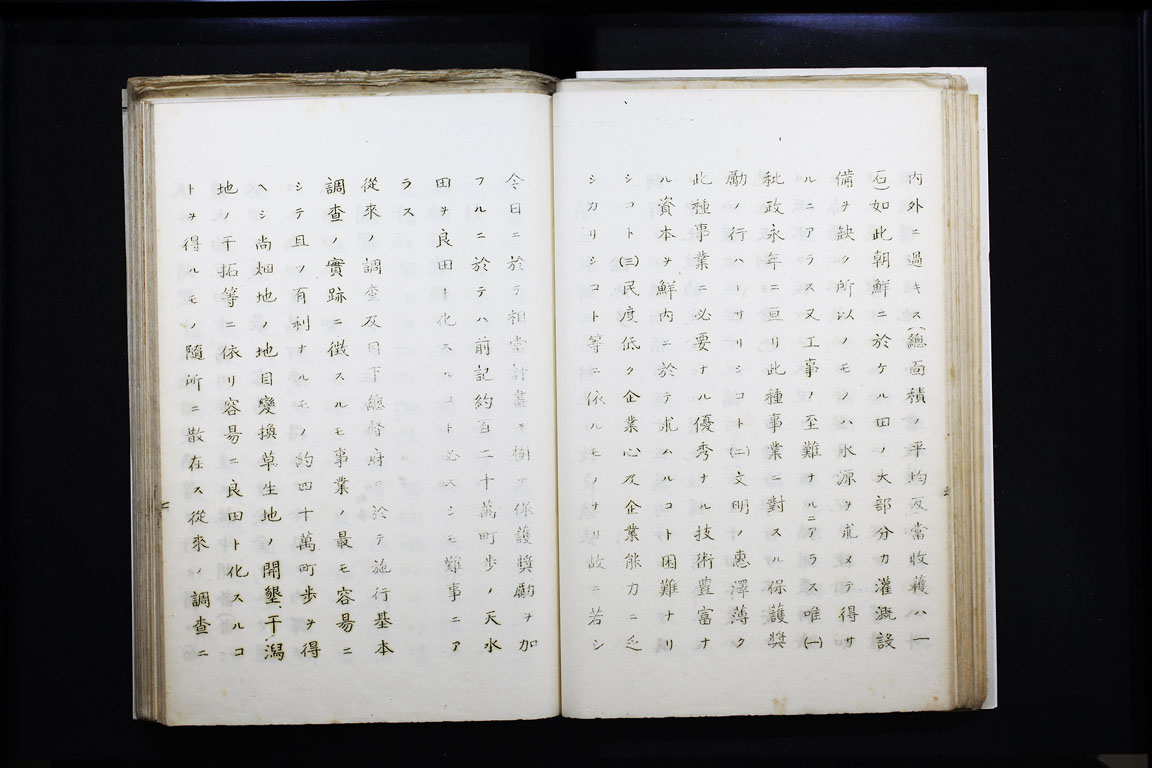 内外ニ過キス(總面積ノ平均反當收穫ハ一
石)如此朝鮮ニ於ケル田ノ大部分カ灌漑設
備ヲ缺ク所以ノモノハ水源ヲ求メテ得サ
ルニアラス又工事ノ至難ナルニアラス唯(一)
秕政永年ニ亘リ此種事業ニ對スル保護奬
勵ノ行ハレサリシコト(二)文明ノ惠澤薄ク
此種事業ニ必要ナル優秀ナル技術豊富ナ
ル資本ヲ鮮内ニ於テ求ムルコト困難ナリ
シコト(三)民度低ク企業心及企業能力ニ乏
シカリシコト等ニ依ルモノナリ故ニ若シ
今日ニ於テ相當計畫ヲ樹テ保護奬勵ヲ加
フルニ於テハ前記約百二十萬町歩ノ天水
田ヲ良田ト化スルコト必スシモ難事ニア
ラス
從來ノ調査及目下總督府ニ於テ施行基本
調査ノ實跡ニ徴スルモ事業ノ最モ容易ニ
シテ且ツ有利ナルモノ約四十萬町歩ヲ得
ヘシ尚畑地ノ地目變換草生地ノ開墾、干潟
地ノ干拓等ニ依リ容易ニ良田ト化スルコ
トヲ得ルモノ隨所ニ散在ス從來ノ調査ニ